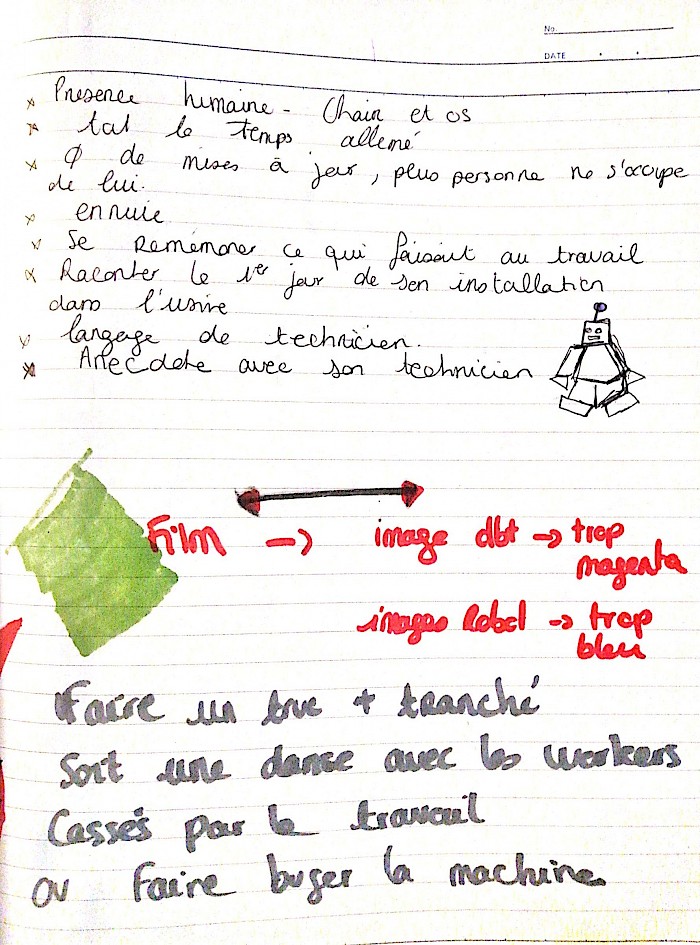 No.
DATE
× Présence humaine - Chair et os
× tat le temps allemé
× Ø de mises à jour, plus personne ne s'occupe
de lui.
× ennuie
× Se Remémorer ce qui faisait au travail
× Raconter le 1er jour de son installation
dans l'usine
× langage de technicien.
× Anecdote avec son technicien
Film -> image dbt -> trop
magenta
images Robot -> trop
bleu
Faire un truc + tranché
Soit une danse avec les workers
Cassés par le travail
ou faire buger la machine